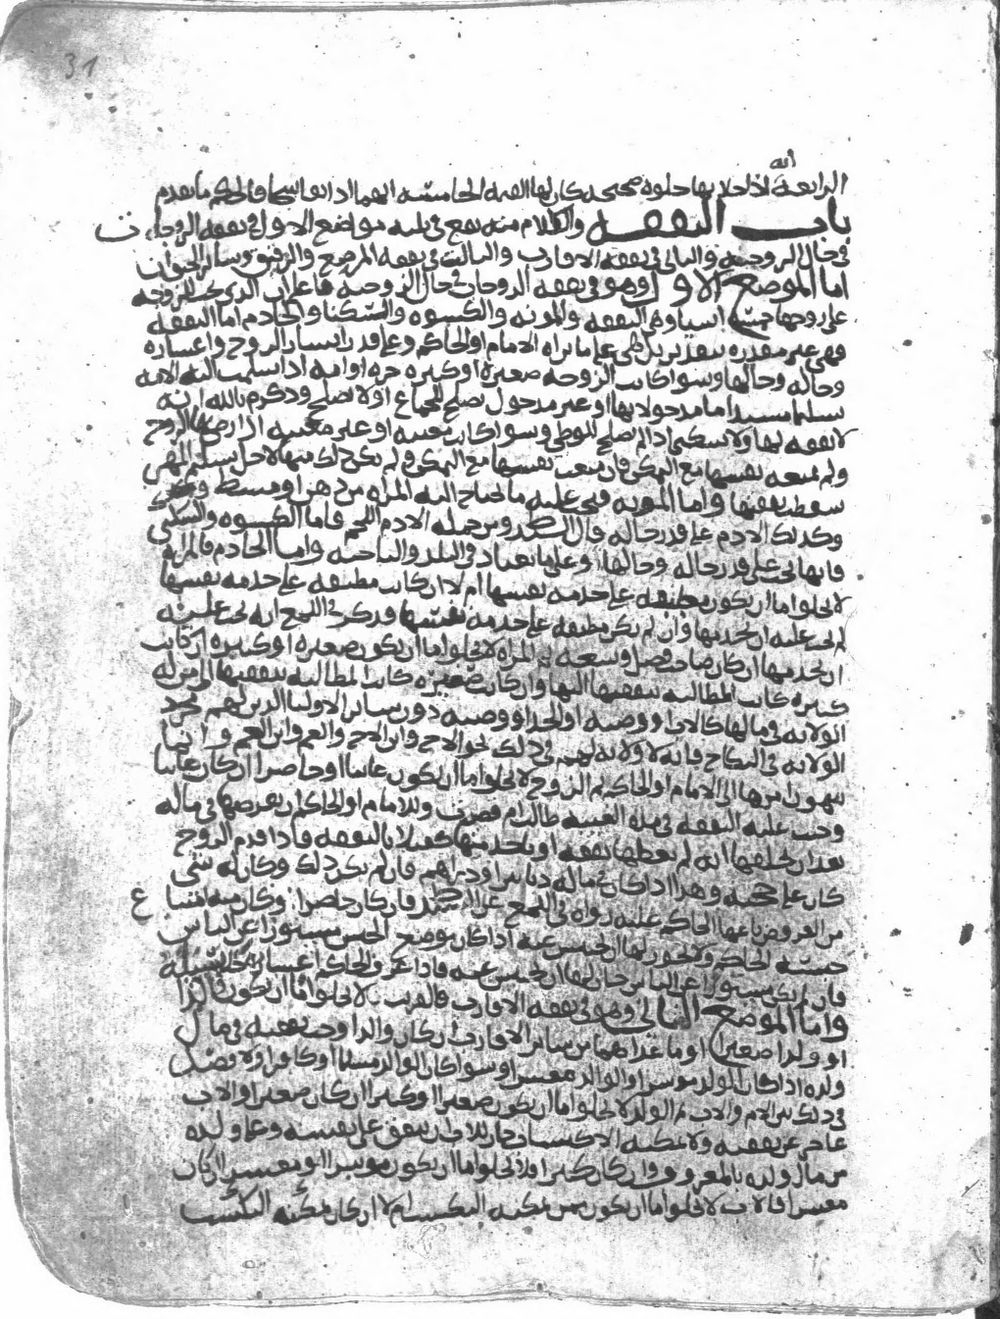 31
انه
الرابعة اذا خلا بها خلوة صحيحة كان لها الفسخ الخامسة انهما اذا تفاسخا فالحكم ما تقدم
باب النفقه والكلام منه يقع في ثلثه مواضع الاول في نفقه الزوجات
في حال الزوجيه والثاني في نفقه الاقارب والثالث في نفقه المرضع والرقيق وسائر الحيوان
اما الموضع الاول وهو في نفقه الزوجات في حال الزوجيه فاعلم ان الذي يجب للزوجه
على زوجها خمسه اشيا وهي النفقه والمونه والكسوه والسكنا والخادم اما النفقه
فهي غير مقدره بتقدير بل هي على ما يراه الامام او الحاكم وعلى قدر ايسار الزوج واعساره
وحاله وحالها وسوا كانت الزوجه صغيرة او كبيره حره او امه اذا سلمت اليه الامه
تسليما مستداما مدخولا بها او غير مدخول تصلح للجماع او لا تصلح وذكر م بالله انه
لا نفقه لها ولا سكنى اذا لم تصلح للوطي وسوا كانت معيبه او غير معيبه اذا رضي بها الزوج
ولم تمنعه نفسها مع التمكن فان منعت نفسها مع التمكن ولم يكن ذلك منها لاجل تسليم المهر
سقطت نفقتها واما المونه فيجب عليه ما تحتاج اليه المراه من دهن ومشط وغير
وكذلك الادم على قدر حاله قال السيد ومن جمله الادم اللحم فاما الكسوه والسكنى
فانها تجب على قدر حاله وحالها وعلى ما يعتاد في البلد والناحيه واما الخادم فالمراه
لا يخلو اما ان تكون مطيقه على خدمه نفسها ام لا ان كانت مطيقه على خدمه نفسها
لم يجب عليه ان يخدمها وان لم تكن مطيقه على خدمه نفسها فذكر في اللمع انه يجب عليه
ان يخدمها ان كان صاحب فضل وسعه ثم المراه لا يخلو اما ان تكون صغيره او كبيره ان كانت
كبيره كانت المطالبه بنفقتها اليها وان كانت صغيره كانت المطالبه بنفقتها الى من له
الولايه في مالها كالاب او وصيه او الجد او وصيه دون سائر الاوليا الذين لهم مجرد
الولايه في النكاح فانه لا ولايه لهم في ذلك نحو الاخ وابن الاخ والعم وابن العم وانما
ينهون امرها الى الامام او الحاكم ثم الزوج لا يخلو اما ان يكون غائبا او حاضرا ان كان غائبا
وجب عليه النفقه في مده الغيبه طالت ام قصرت وللامام او الحاكم ان يفرضها في ماله
بعد ان يحلفها انه لم يعطها نفقه او ياخذ منها كفيلا بالنفقه فاذا قدم الزوج
كان على حجته وهذا اذا كان ماله دنانير او دراهم فان لم يكن ذلك وكان له شي
من العروض باعها الحاكم عليه رواه في اللمع عن السيد فان كان حاضرا وكان منه امتناع
حبسه الحاكم ولا يجوز لها ان تحبس عنه اذا كان موضع الحبس مستورا عن الناس
فان لم يكن مستورا عن الناس جاز لها ان تحبس عنه فاذا عرف الحاكم اعساره خلا سبيله
واما الموضع الثاني وهو في نفقه الاقارب فالقريب لا يخلو اما ان يكون والدا
او ولدا صغيرا او ما عداهما من سائر الاقارب ان كان والدا وجب نفقته في مال
ولده اذا كان الولد موسرا والوالد معسر او سوا كان الوالد مسلما او كافرا ولا فصل
في ذلك بين الام والاب ثم الولد لا يخلو اما ان يكون صغيرا او كبيرا ان كان صغيرا والاب
عاجز عن نفقته ولا يمكنه الاكتساب جاز للاب ان ينفق على نفسه وعلى ولده
من مال ولده بالمعروف وان كان كبيرا فلا يخلو اما ان يكون موسرا او معسرا ان كان
معسرا فالاب لا يخلو اما ان يكون ممن يمكنه التكسب ام لا ان كان يمكنه التكسب